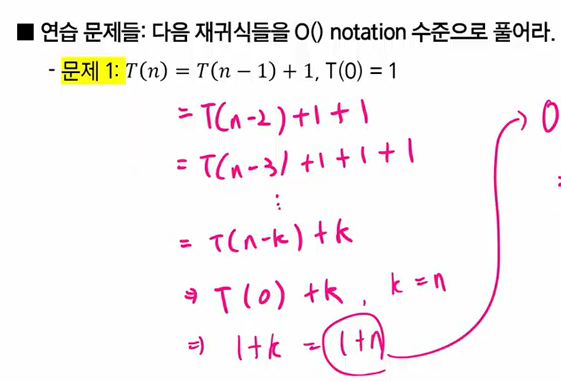 ■ 연습 문제들: 다음 재귀식들을 O() notation 수준으로 풀어라.
- 문제 1: T(n) = T(n − 1) + 1, T(0) = 1
= T(n-2) + 1 + 1
= T(n-3) + 1 + 1 + 1
⋮
= T(n-k) + k
⇒ T(0) + k, k = n
⇒ 1+k = 1+n → O